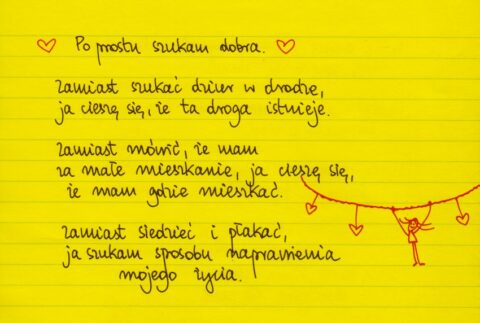 Po prostu szukam dobra.
zamiast szukać dziur w drodze,
ja cieszę się, że ta droga istnieje.
zamiast mówić, że mam
za małe mieszkanie, ja cieszę się,
że mam gdzie mieszkać.
zamiast siedzieć i płakać,
ja szukam sposobu naprawienia
mojego życia.